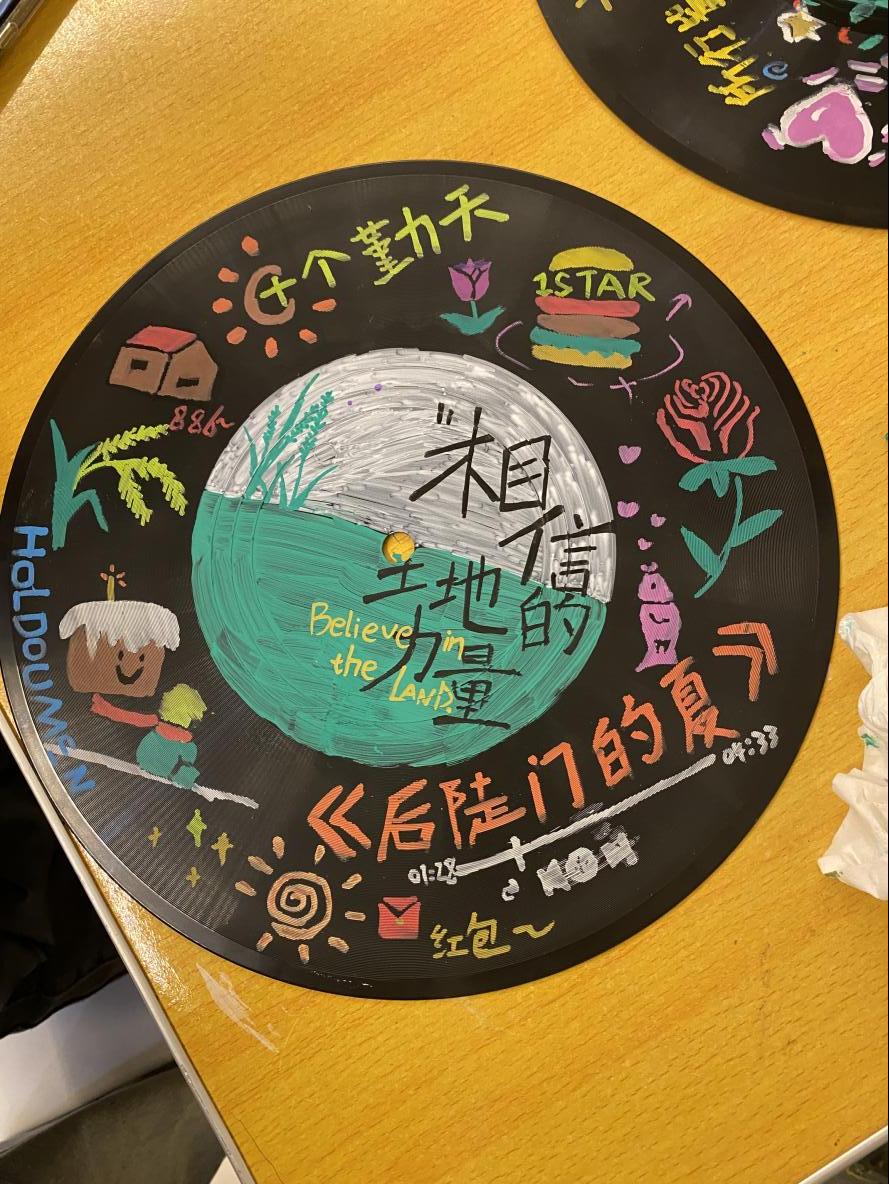 十个勤天
1STAR
886~
HoLDOUMEN
"相
信
的
土地
力量
Believe in
the LAND.
《后陡门的夏》
04:33
01:28
红包~